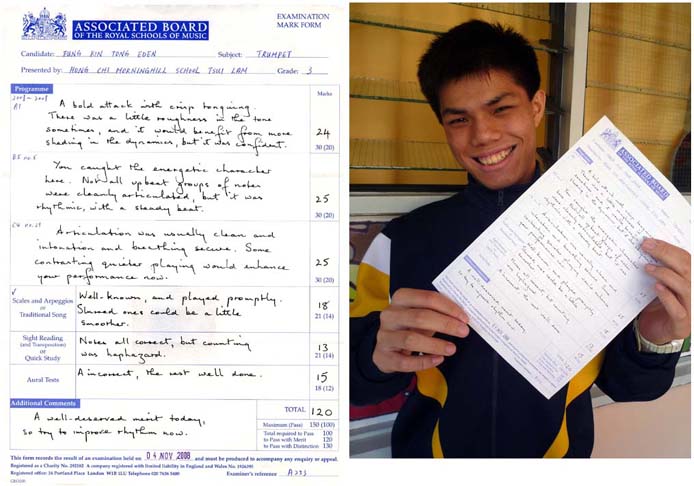 ASSOCIATED BOARD
OF THE ROYAL SCHOOLS OF MUSIC
EXAMINATION
MARK FORM
Candidate: FUNG KIN TONG EDEN Subject: TRUMPET
Presented by: HONG CHI MORNINGHILL SCHOOL TSUI LAM Grade: 3
Programme Marks
A1
A bold attack with crisp tonguing.
There was a little roughness in the tone
sometimes, and it would benefit from more
shading in the dynamics, but it was confident.
24
30 (20)
B5 no.5
You caught the energetic character
here. Not all upbeat groups of notes
were cleanly articulated, but it was
rhythmic, with a steady beat.
25
30 (20)
Articulation was usually clean and
intonation and breathing secure. Some
contrasting quieter playing would enhance
your performance now.
25
30 (20)
Scales and Arpeggios
or
Traditional Song
Well-known, and played promptly.
Slurred ones could be a little
smoother.
18
21 (14)
Sight Reading
(and Transposition)
or
Quick Study
Notes all correct, but counting
was haphazard.
13
21 (14)
Aural Tests
A incorrect, the rest well done.
15
18 (12)
Additional Comments
A well-deserved merit today,
so try to improve rhythm now.
TOTAL 120
Maximum (Pass) 150 (100)
Total required to Pass 100
to Pass with Merit 120
to Pass with Distinction 130
This form records the result of an examination held on 04 NOV 2008 and must be produced to accompany any enquiry or appeal.
Registered as a Charity No. 292182 A company registered with limited liability in England and Wales No. 1926395
Registered office: 24 Portland Place London W1B 1LU Telephone 020 7636 5400
Examiner's reference
ASSOCIATED BOARD